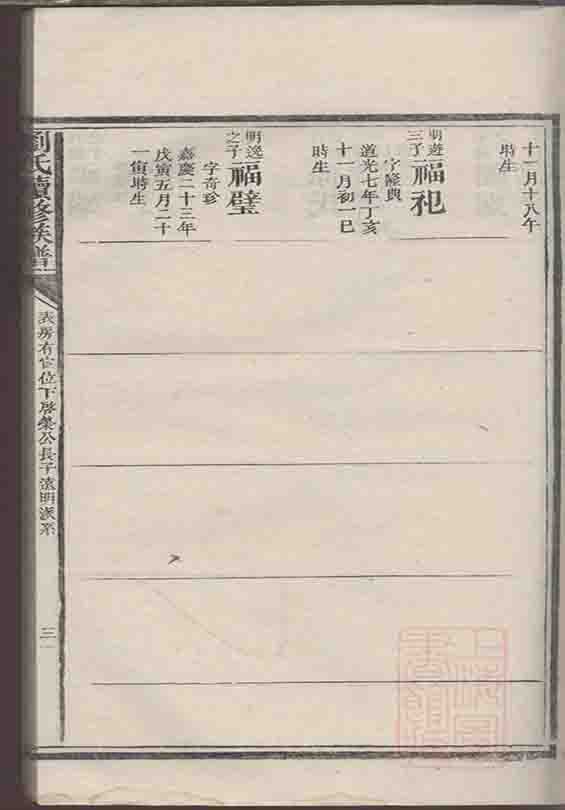 十一月十八午
時生
明遊三子
福祀
字隆典
道光七年丁亥
十一月初一巳
時生
明逸之子
福璧
字奇珍
嘉慶二十三年
戊寅五月二十
一寅時生
劉氏續修族譜
表房有官位下啓榮公長子遠明派系
三一
上海圖書館藏